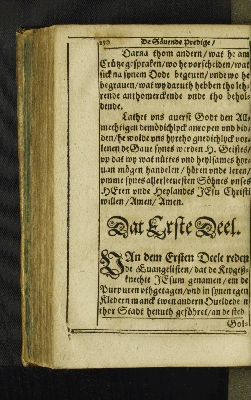 190 De Sövende Predige /
Darna thom andern / wat he am
Crütze gespraken / wo he vorscheiden / wat
sick na synen Dode begeuen / vnde wo he
begrauen / wat wy daruth hebben tho leh-
rende anthomerckende vnde tho behol-
dende.
Lathet vns auerst Godt den All-
mechtigen demödichlyck anropen vnd bid-
den / he wolde vns hyrtho gnedichlyck vor-
lenen de Gaue synes werden H. Geistes /
vp dat wy wat nüttes vnd heylsames hyr-
uan mögen handelen / hören vnde leren /
vmme synes allerleuesten Söhnes vnses
HEren vnde Heylandes JEsu Christi
willen / Amen / Amen.
Dat Erste Deel.
VAn dem Ersten Deele reden
de Euangelisten / dat de Krygeß-
knechte JEsum genamen / em de
Purpuren vthgetagen / vnd in synen egen
Kledern manck twen andern Oueldedern
ther Stadt henuth geföhret / an de sted
Gol-